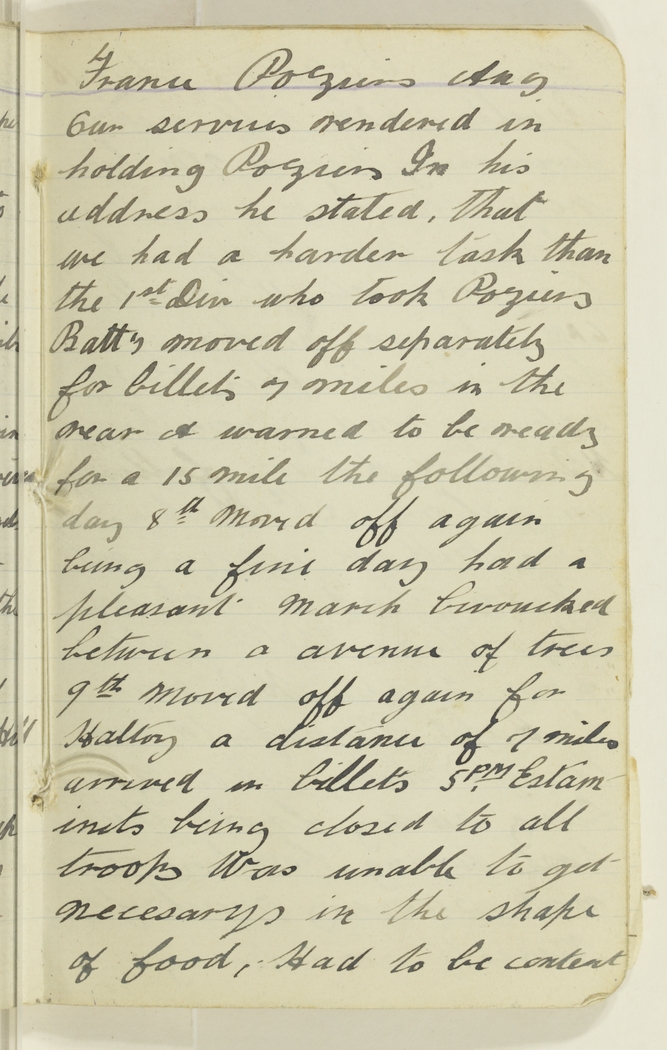 4
France Poziers Aug
Our servies rendered in
holding Poziers In his
address he stated, that
we had a harder task than
the 1st Div who took Poziers
Batt's moved off separately
for billets 7 miles in the
rear & warned to be ready
for a 15 mile the following
day 8th Moved off again
being a fine day had a
pleasant March bivoucked
between a avenue of trees
9th Moved off again for
Halloy a distance of 7 miles
arrived in billets 5PM Estam-
inets being closed to all
troops Was unable to get
necesarys in the shape
of food, Had to be content